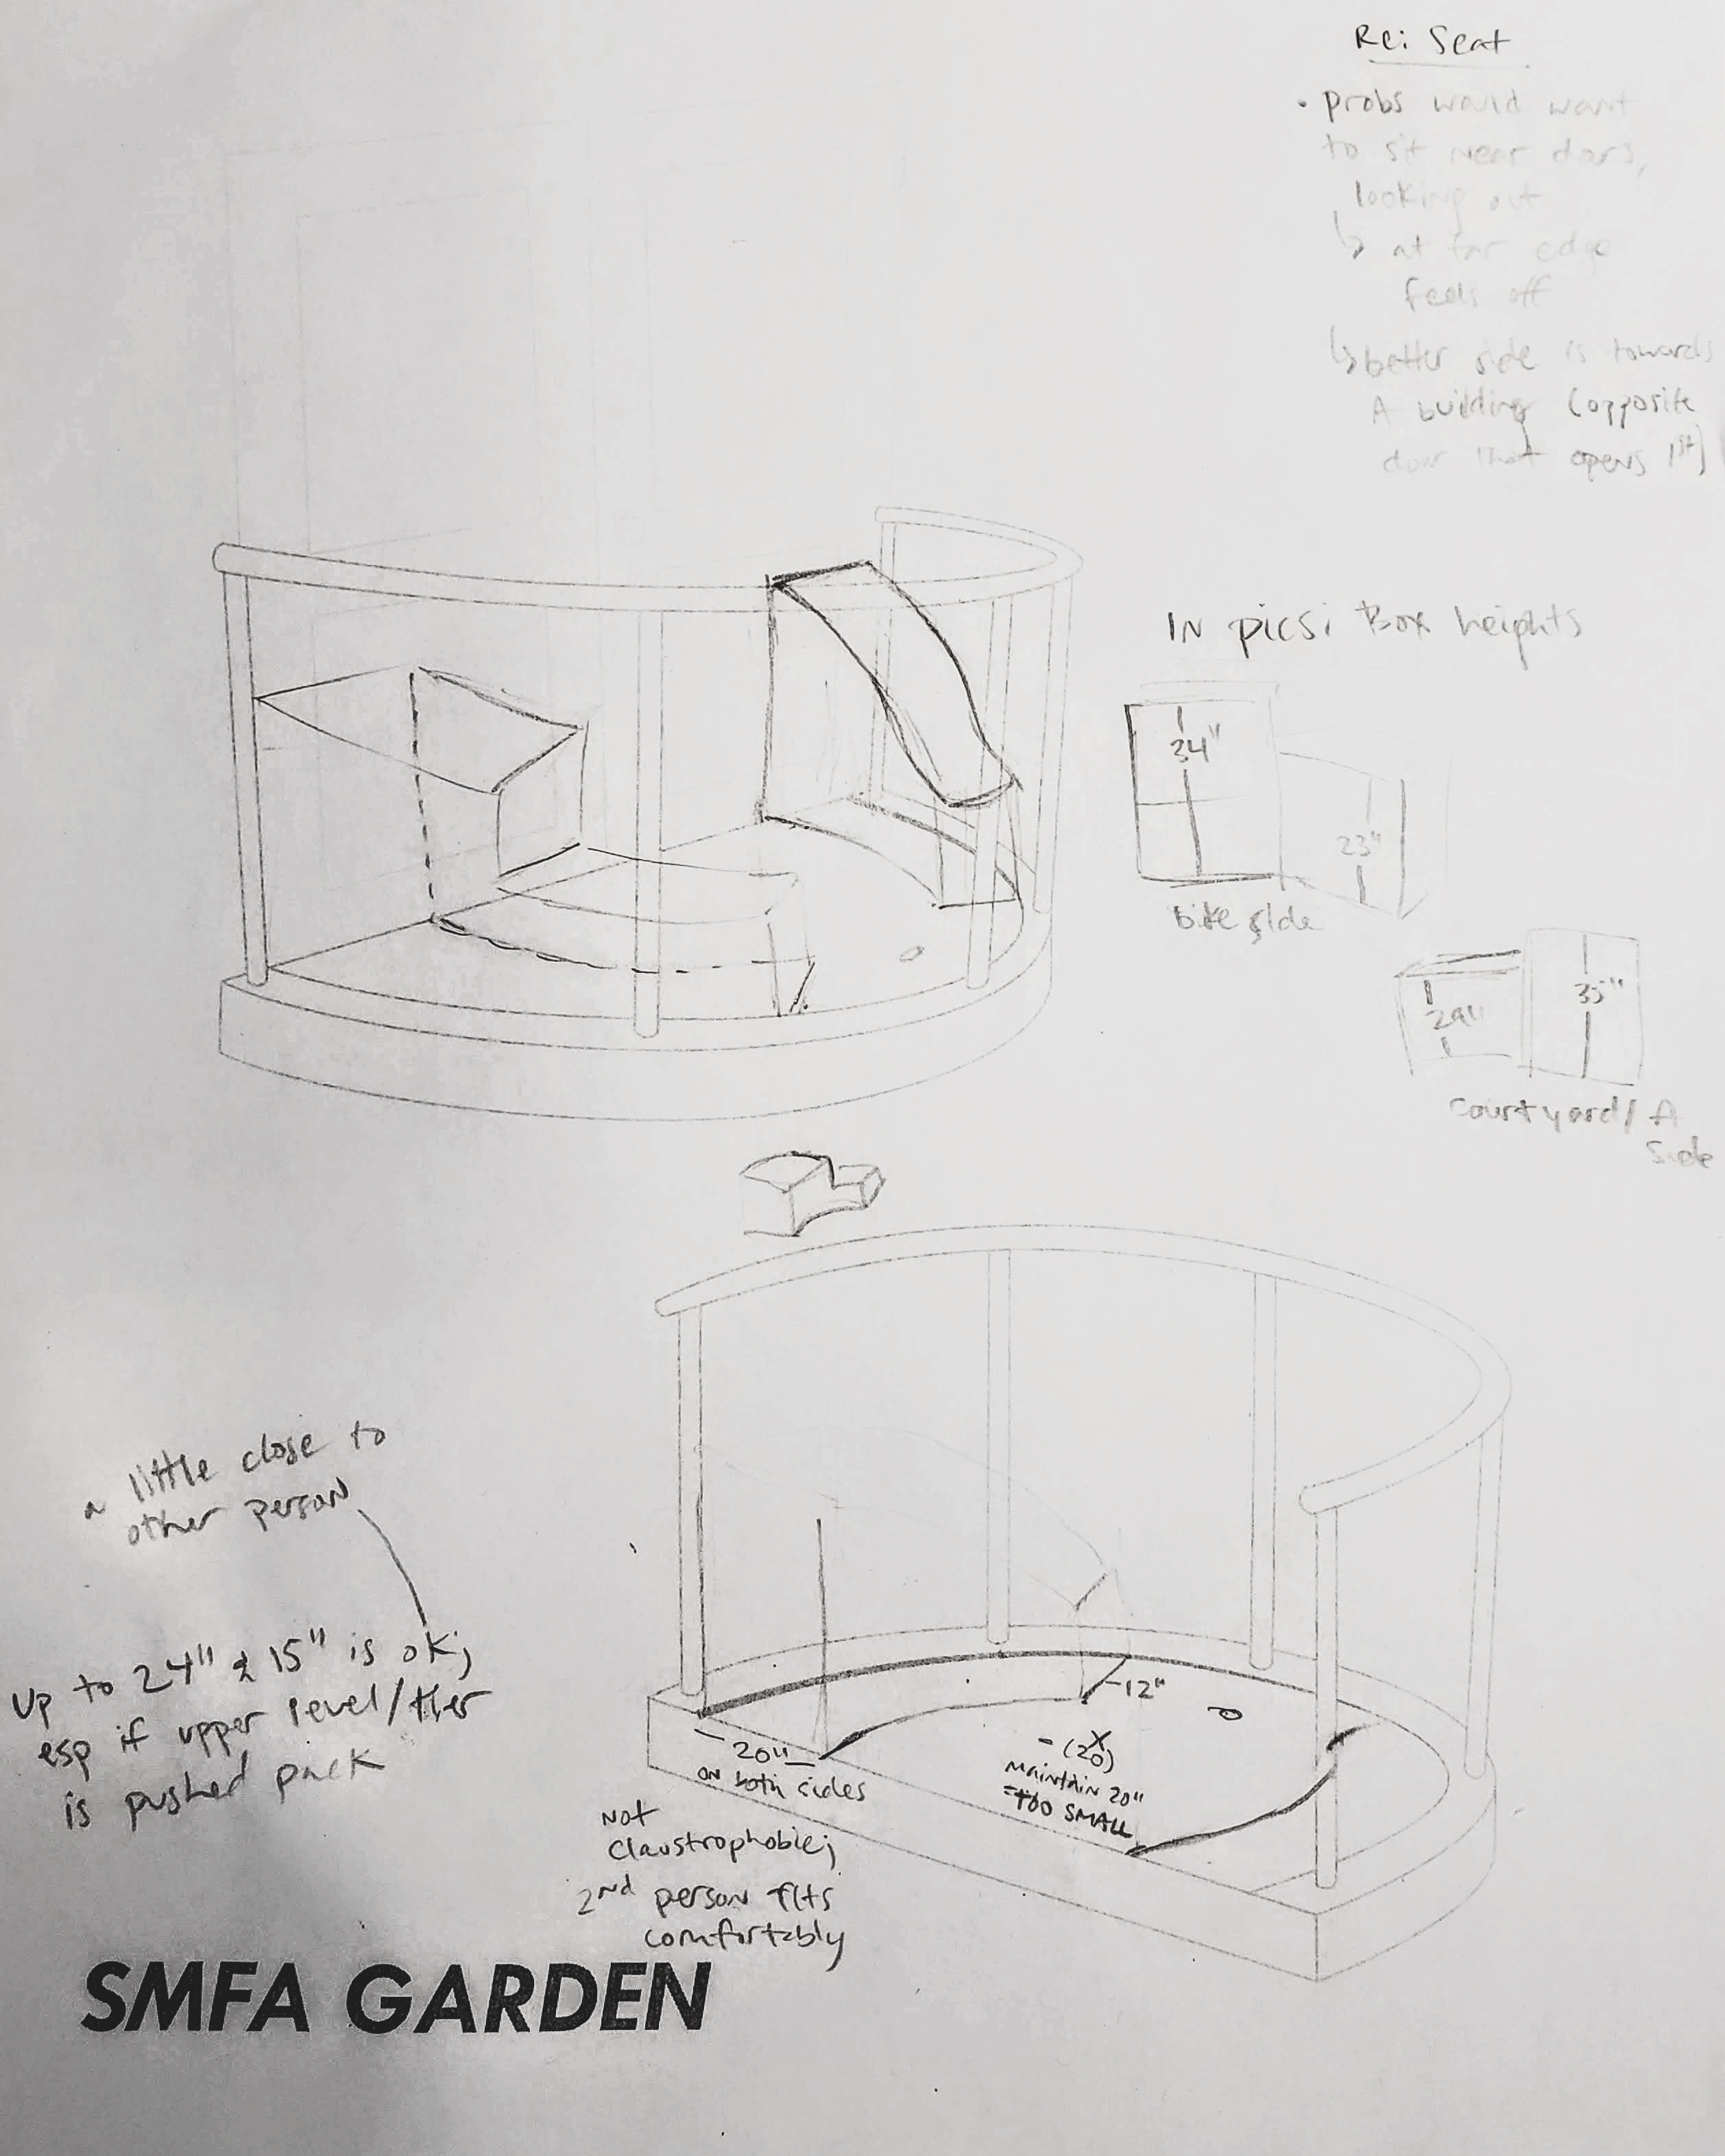 Re: Seat
• probs would want
to sit near doors,
looking out
↳ at far edge
feels off
↳ better side is towards
A building (opposite
door that opens 1st)
IN pics: Box heights
34"
23"
bike side
29"
35"
courtyard/A
Side
a little close to
other person
up to 24" & 15" is ok;
esp if upper level/tier
is pushed pack
12"
20"
on both sides
- (20)
X
Maintain 20"
=TOO SMALL
Not
Claustrophobic;
2nd person fits
comfortably
SMFA GARDEN